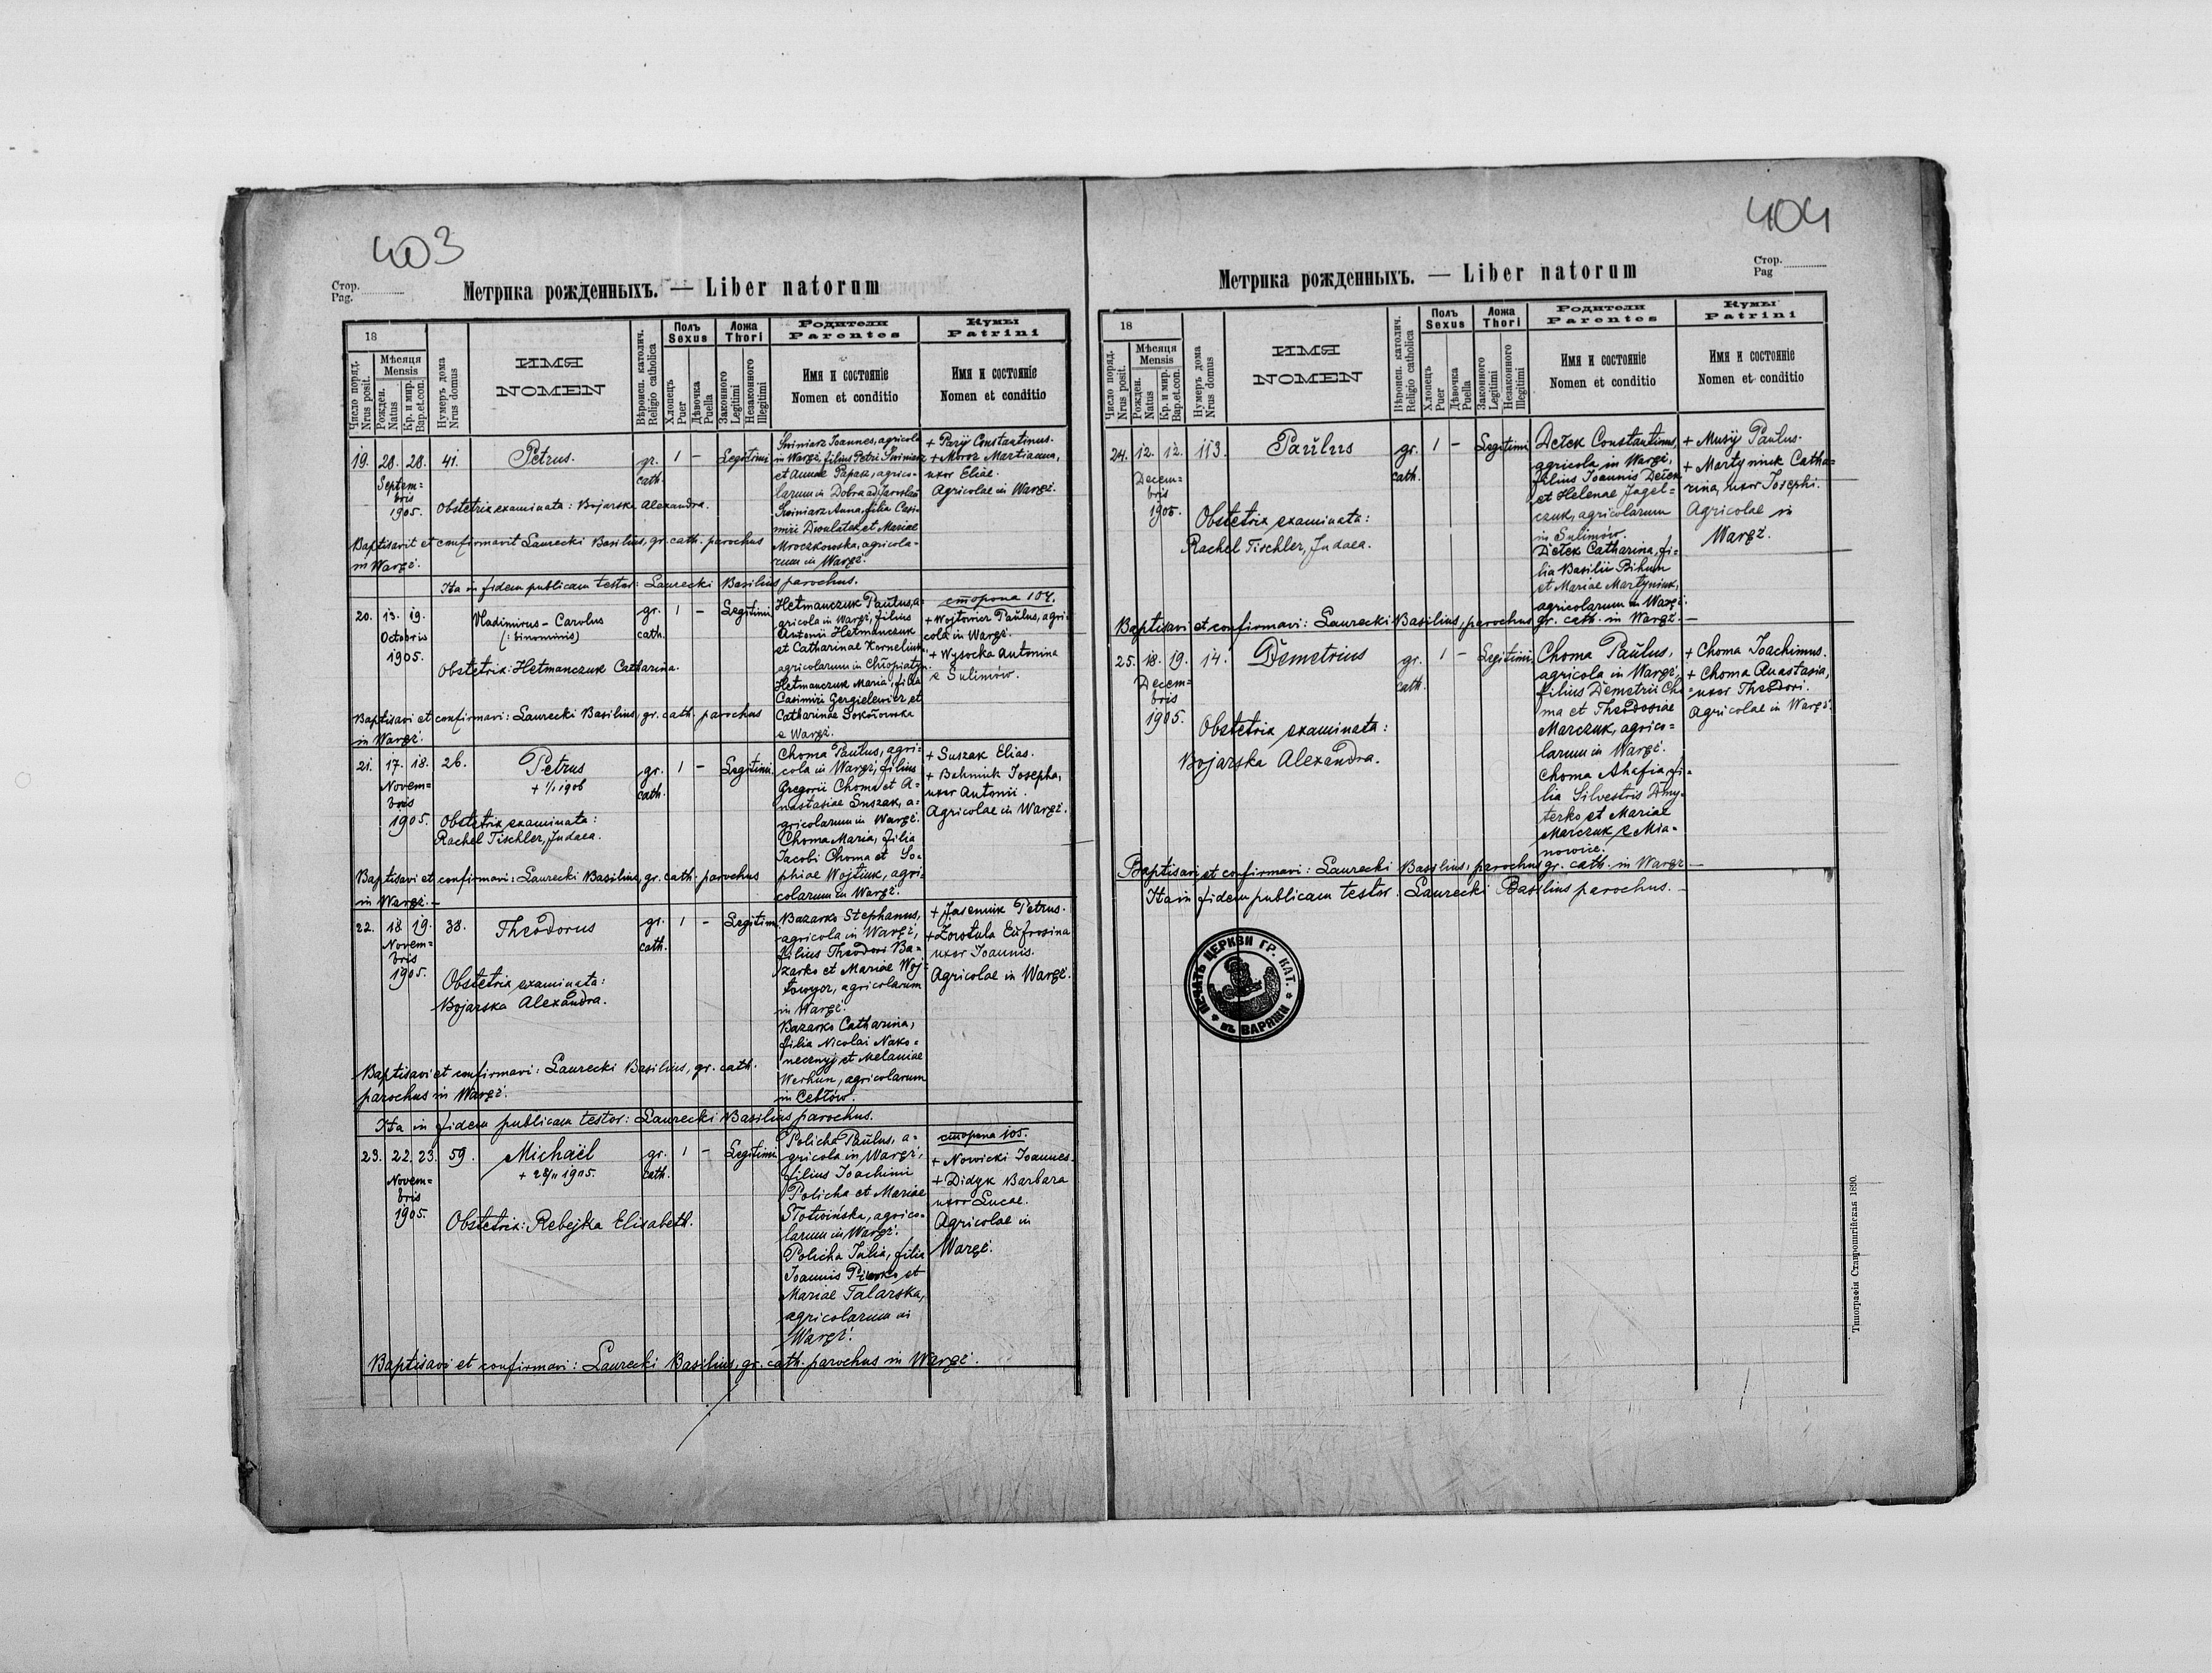 403
Стор.
Pag.
Метрика рожденныхъ. — Liber natorum
18
Число поряд.
Nrus posit.
Мѣсяця
Mensis
Рожден.
Natus
Кр. и мир.
Bap.et.con.
Нумеръ дома
Nrus domus
ИМЯ
NOMEN
Вѣроисп. католич.
Religio catholica
Полъ
Sexus
Хлопецъ
Puer
Дѣвочка
Puella
Ложа
Thori
Законного
Legitimi
Незаконного
Illegitimi
Родители
Parentes
Имя и состояніе
Nomen et conditio
Кумы
Patrini
Имя и состояніе
Nomen et conditio
19. 28. 28. 41. Petrus. gr. cath. 1 – Legitimi
Septem=
bris
1905.
Obstetrix examinata: Bojarska Alexandra.
Świniarz Joannes, agricola
in Waręż, filius Petri Świniarz
et Annae Papaz, agrico-
larum in Dobra ad Jarosłau
Świniarz Anna, filia Casi-
miri Dwulatek et Mariae
Mroczkowska, agricola-
rum in Waręż.
+ Paryj Constantinus.
+ Moroz Martianna,
uxor Eliae.
Agricolae in Waręż.
Baptisavit et confirmavit Laurecki Basilius, gr. cath. parochus
in Waręż.
Ita in fidem publicam testor: Laurecki Basilius parochus.
20. 13. 19. Vladimirus – Carolus gr. cath. 1 – Legitimi
Octobris
1905.
(: binominis)
Obstetrix: Hetmanczuk Catharina.
Hetmanczuk Paulus, a-
gricola in Waręż, filius
Antonii Hetmanczuk
et Catharinae Korneliuk
agricolarum in Chłopiatyn.
Hetmanczuk Maria, filia
Casimiri Gergielewicz et
Catharinae Sokołowska
e Waręż.
сторона 104.
+ Wojtowicz Paulus, agri-
cola in Waręż.
+ Wysocka Antonina
e Sulimów.
Baptisavi et confirmavi: Laurecki Basilius, gr. cath. parochus
in Waręż.
21. 17. 18. 26. Petrus gr. cath. 1 – Legitimi
Novem=
bris
1905.
+ 1/1 1906
Obstetrix examinata:
Rachel Tischler, Judaea.
Choma Paulus, agri-
cola in Waręż, filius
Gregorii Choma et A-
nastasiae Suszak, a-
gricolarum in Waręż.
Choma Maria, filia
Jacobi Choma et So-
phiae Wojtiuk, agri-
colarum in Waręż.
+ Suszak Elias.
+ Bahniuk Josepha,
uxor Antonii.
Agricolae in Waręż.
Baptisavi et confirmavi: Laurecki Basilius, gr. cath. parochus
in Waręż. –
22. 18. 19. 38. Theodorus gr. cath. 1 – Legitimi
Novem=
bris
1905.
Obstetrix examinata:
Bojarska Alexandra.
Bazarko Stephanus,
agricola in Waręż,
filius Theodori Ba-
zarko et Mariae Woj-
towycz, agricolarum
in Waręż.
Bazarko Catharina,
filia Nicolai Nako-
necznyj et Melaniae
Werhun, agricolarum
in Cebłów.
+ Jaseniuk Petrus.
+ Zowtula Eufrosina
uxor Joannis.
Agricolae in Waręż.
Baptisavi et confirmavi: Laurecki Basilius, gr. cath.
parochus in Waręż.
Ita in fidem publicam testor: Laurecki Basilius parochus.
23. 22. 23. 59. Michaël gr. cath. 1 – Legitimi
Novem=
bris
1905.
+ 28/11 1905.
Obstetrix: Rebejka Elisabeth.
Policha Paulus, a-
gricola in Waręż,
filius Joachimi
Policha et Mariae
Słotwińska, agrico-
larum in Waręż.
Policha Julia, filia
Joannis et
Mariae Talarska,
agricolarum in
Waręż.
сторона 105.
+ Nowicki Joannes.
+ Didyk Barbara
uxor Lucae.
Agricolae in
Waręż.
Baptisavi et confirmavi: Laurecki Basilius, gr. cath. parochus in Waręż.
404
Стор.
Pag
Метрика рожденныхъ. — Liber natorum
18
Число поряд.
Nrus posit.
Мѣсяця
Mensis
Рожден.
Natus
Кр. и мир.
Bap.et.con.
Нумеръ дома
Nrus domus
ИМЯ
NOMEN
Вѣроисп. католич.
Religio catholica
Полъ
Sexus
Хлопецъ
Puer
Дѣвочка
Puella
Ложа
Thori
Законного
Legitimi
Незаконного
Illegitimi
Родители
Parentes
Имя и состояніе
Nomen et conditio
Кумы
Patrini
Имя и состояніе
Nomen et conditio
24. 12. 12. 113. Paulus gr. cath. 1 – Legitimi
Decem=
bris
1905.
Obstetrix examinata:
Rachel Tischler, Judaea.
Detek Constantinus,
agricola in Waręż,
filius Joannis Detek
et Helenae Jagel=
czuk, agricolarum
in Sulimów.
Detek Catharina, fi-
lia Basilii Bihun
et Mariae Martyniuk,
agricolarum in Waręż.
+ Musij Paulus.
+ Martyniuk Catha=
rina, uxor Josephi.
Agricolae in
Waręż.
Baptisavi et confirmavi: Laurecki Basilius, parochus gr. cath. in Waręż. –
25. 18. 19. 14. Demetrius gr. cath. 1 – Legitimi
Decem=
bris
1905.
Obstetrix examinata:
Bojarska Alexandra.
Choma Paulus,
agricola in Waręż,
filius Demetrii Cho
ma et Theodosiae
Marczuk, agrico=
larum in Waręż.
Choma Ahafia, fi=
lia Silvestris Dmy-
terko et Mariae
Marczuk e Mia=
nowice.
+ Choma Joachimus.
+ Choma Anastasia,
=uxor Theodori.
Agricolae in Waręż.
Baptisavi et confirmavi: Laurecki Basilius, parochus gr. cath. in Waręż –
Ita in fidem publicam testor. Laurecki Basilius parochus. –
ПЕЧАТЬ ЦЕРКВИ ГР. КАТ.
въ ВАРЯЖИ
Типографія Ставропигійская 1890.